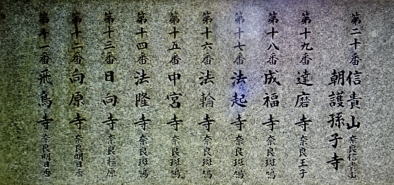 第二十番 信貴山 朝護孫子寺 奈良信貴山
第十九番 達磨寺 奈良王子
第十八番 成福寺 奈良斑鳩
第十七番 法起寺 奈良斑鳩
第十六番 法輪寺 奈良斑鳩
第十五番 中宮寺 奈良斑鳩
第十四番 法隆寺 奈良斑鳩
第十三番 日向寺 奈良橿原
第十二番 向原寺 奈良明日香
第十一番 飛鳥寺 奈良明日香